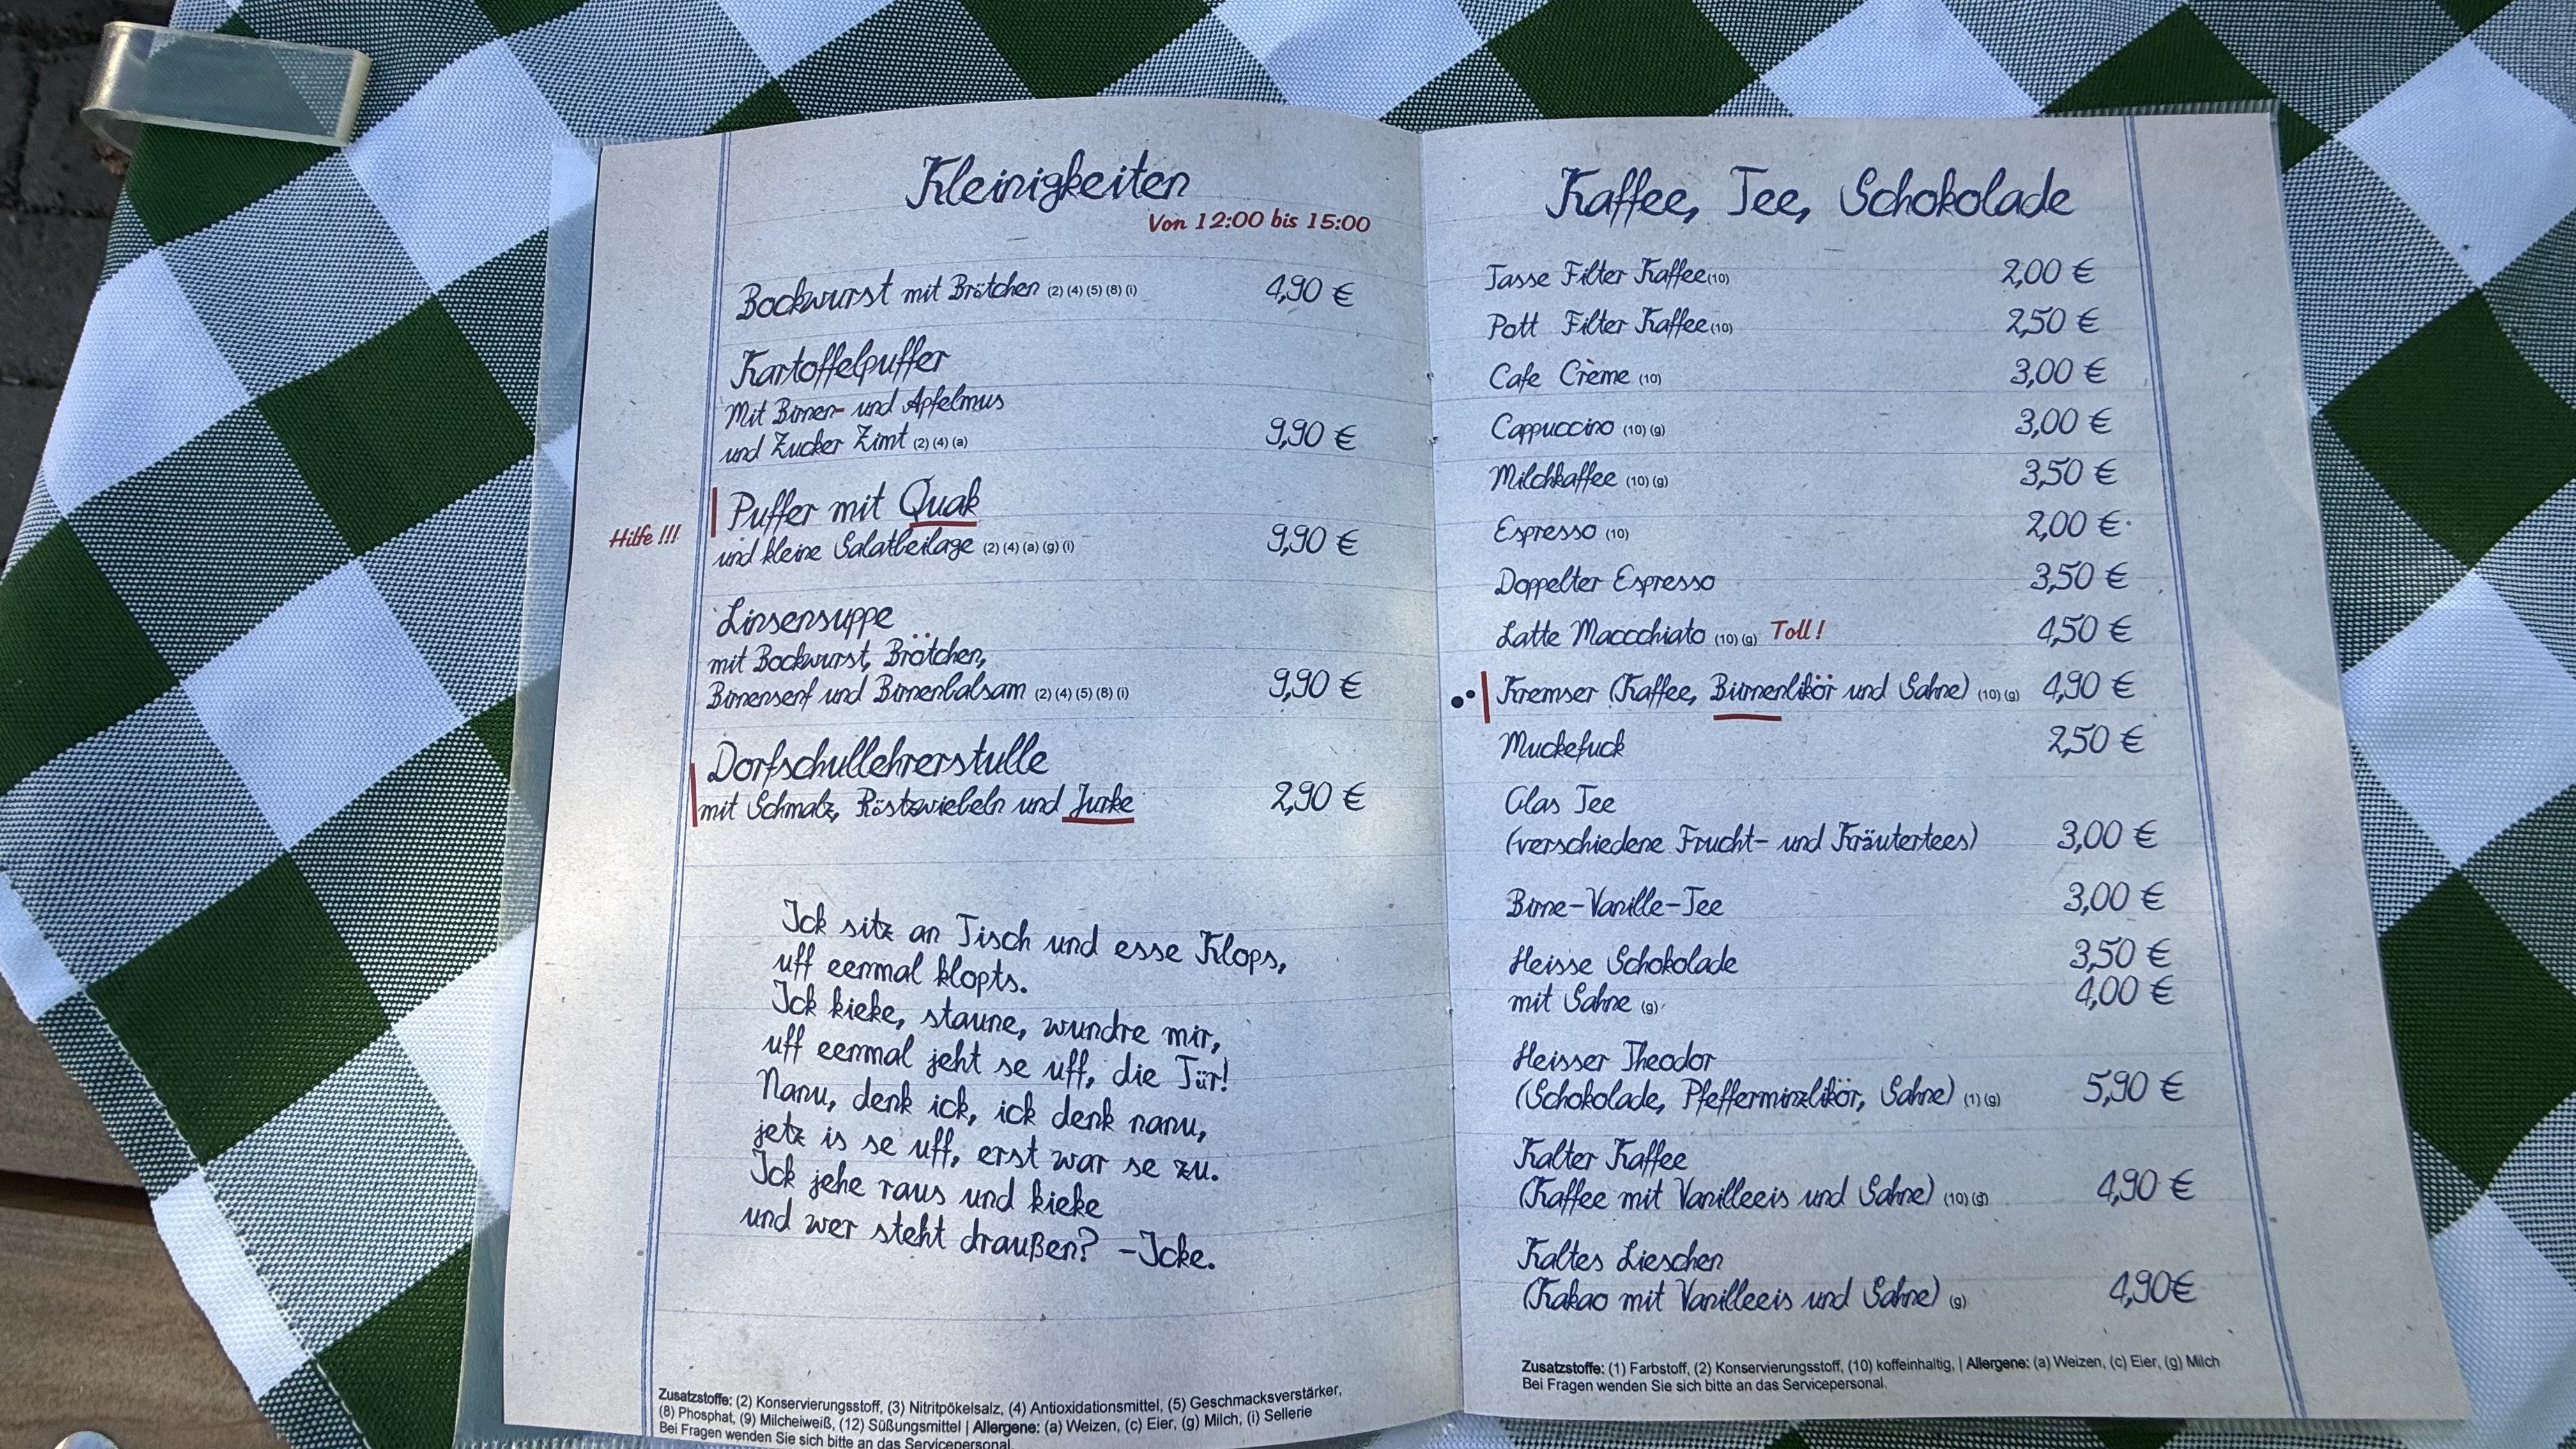 Kleinigkeiten
Von 12:00 bis 15:00
Bockwurst mit Brötchen (2) (4) (5) (8) (i) 4,90 €
Kartoffelpuffer
Mit Birnen- und Apfelmus
und Zucker Zimt (2) (4) (a) 9,90 €
Hilfe !!!
Puffer mit Quak
und kleine Salatbeilage (2) (4) (a) (g) (i) 9,90 €
Linsensuppe
mit Bockwurst, Brötchen,
Birnensenf und Birnenbalsam (2) (4) (5) (8) (i) 9,90 €
Dorfschullehrerstulle
mit Schmalz, Röstzwiebeln und Jurke 2,90 €
Ick sitz an Tisch und esse Klops,
uff eenmal klopts.
Ick kieke, staune, wundre mir,
uff eenmal jeht se uff, die Tür!
Nanu, denk ick, ick denk nanu,
jetz is se uff, erst war se zu.
Ick jehe raus und kieke
und wer steht draußen? -Icke.
Zusatzstoffe: (2) Konservierungsstoff, (3) Nitritpökelsalz, (4) Antioxidationsmittel, (5) Geschmacksverstärker,
(8) Phosphat, (9) Milcheiweiß, (12) Süßungsmittel | Allergene: (a) Weizen, (c) Eier, (g) Milch, (i) Sellerie
Bei Fragen wenden Sie sich bitte an das Servicepersonal.
Kaffee, Tee, Schokolade
Tasse Filter Kaffee (10) 2,00 €
Pott Filter Kaffee (10) 2,50 €
Cafe Crème (10) 3,00 €
Cappuccino (10) (g) 3,00 €
Milchkaffee (10) (g) 3,50 €
Espresso (10) 2,00 €
Doppelter Espresso 3,50 €
Latte Maccchiato (10) (g) Toll! 4,50 €
Kremser (Kaffee, Birnenlikör und Sahne) (10) (g) 4,90 €
Muckefuck 2,50 €
Glas Tee
(verschiedene Frucht- und Kräutertees) 3,00 €
Birne-Vanille-Tee 3,00 €
Heisse Schokolade 3,50 €
mit Sahne (g) 4,00 €
Heisser Theodor
(Schokolade, Pfefferminzlikör, Sahne) (1) (g) 5,90 €
Kalter Kaffee
(Kaffee mit Vanilleeis und Sahne) (10) (g) 4,90 €
Kaltes Lieschen
(Kakao mit Vanilleeis und Sahne) (g) 4,90€
Zusatzstoffe: (1) Farbstoff, (2) Konservierungsstoff, (10) koffeinhaltig, | Allergene: (a) Weizen, (c) Eier, (g) Milch
Bei Fragen wenden Sie sich bitte an das Servicepersonal.